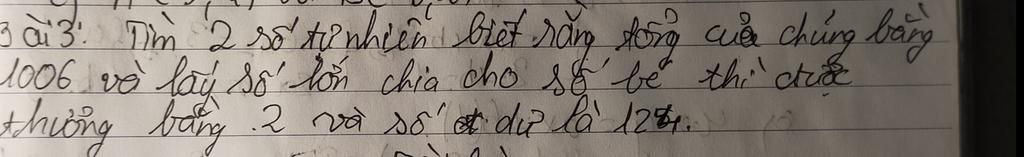 Bài 3: Tìm 2 số tự nhiên biết rằng tổng của chúng bằng
1006 và lấy số lớn chia cho số bé thì được
thương bằng 2 và số dư là 124.